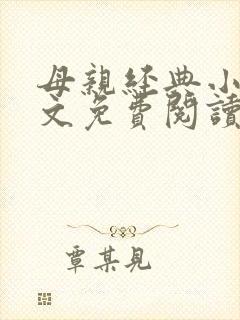 母親經典小
文免費閱讀
覃某見